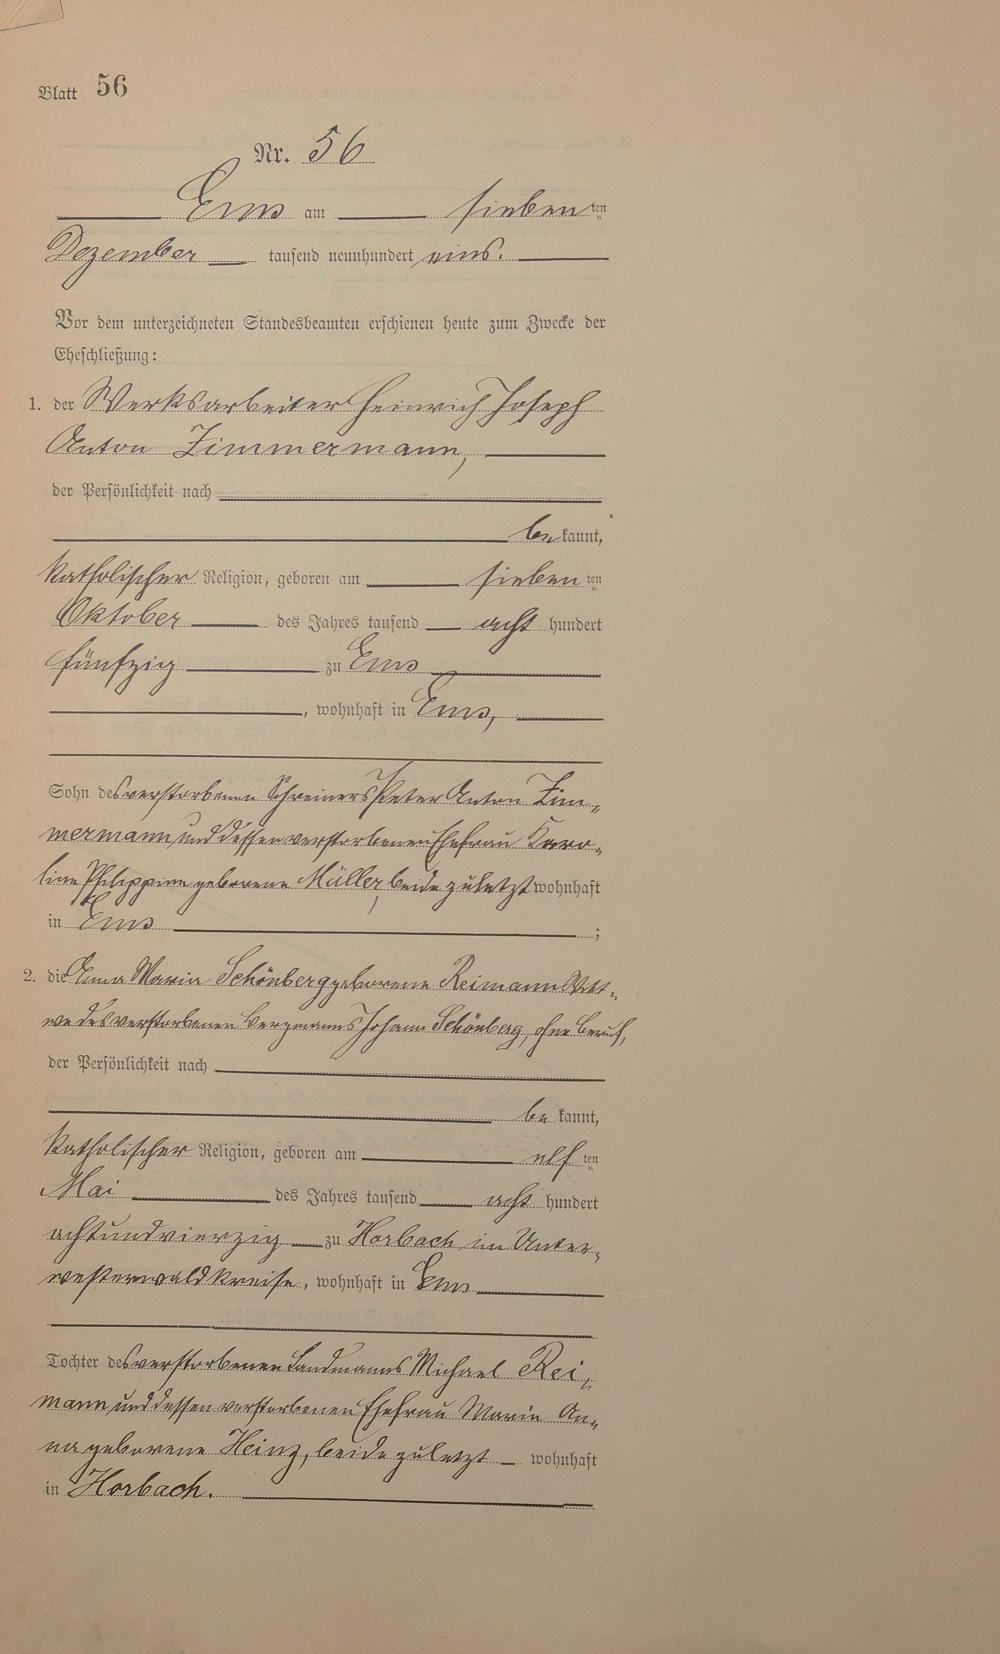 Blatt 56
Nr. 56
Ems am siebenten
Dezember tausend neunhundert eins.
Vor dem unterzeichneten Standesbeamten erschienen heute zum Zwecke der
Eheschließung:
1. der Werksarbeiter Heinrich Joseph
Anton Zimmermann,
der Persönlichkeit nach
bekannt,
katholischer Religion, geboren am siebenten
Oktober des Jahres tausend acht hundert
fünfzig zu Ems
, wohnhaft in Ems,
Sohn des verstorbenen Schreiners Peter Anton Zim„
mermann und dessen verstorbenen Ehefrau Karo„
line Philippine geborene Müller, beide zuletzt wohnhaft
in Ems ;
2. die Anna Maria Schönberg geborene Reimann Witt„
we des verstorbenen Bergmanns Johann Schönberg, ohne Beruf,
der Persönlichkeit nach
bekannt,
katholischer Religion, geboren am elften
Mai des Jahres tausend acht hundert
achtundvierzig zu Horbach im Unter„
westerwaldkreise, wohnhaft in Ems
Tochter des verstorbenen Landmanns Michael Rei„
mann und dessen verstorbenen Ehefrau Maria An„
na geborene Heinz, beide zuletzt wohnhaft
in Horbach.